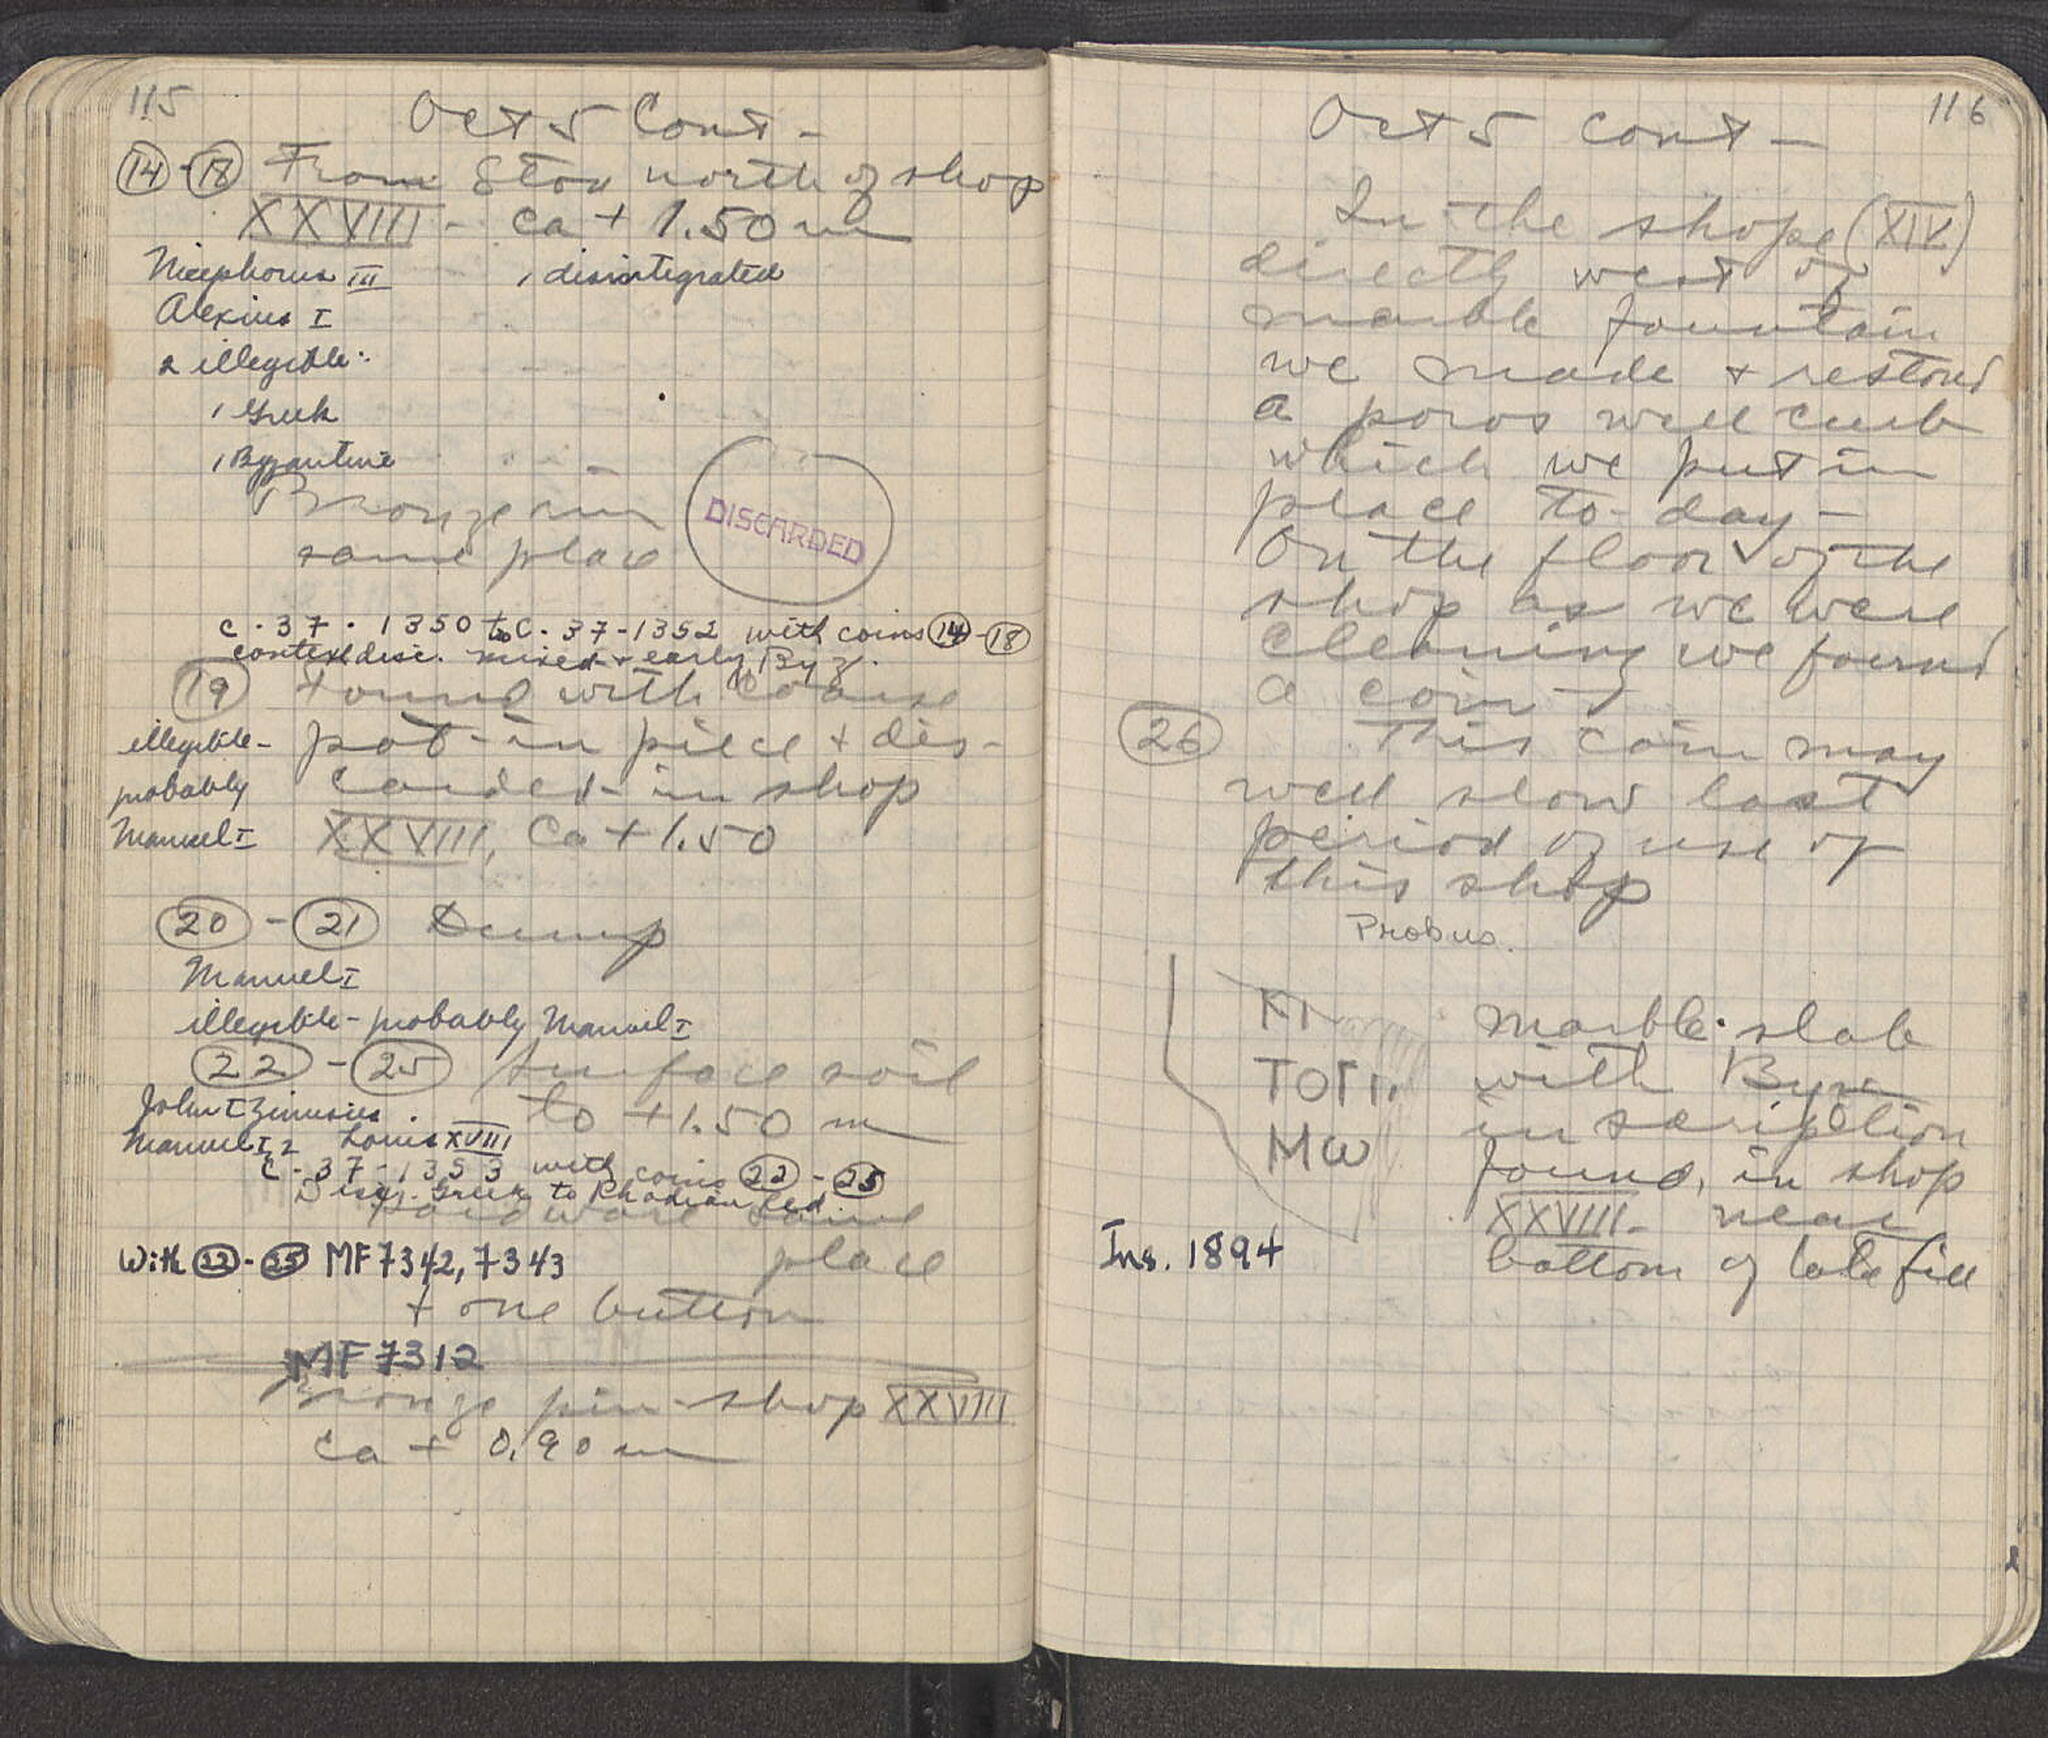 115
Oct 5 Cont -
14 - 18 From Stoa north of shop
XXVIII - ca + 1.50 m
Nicephorus III 1 disintegrated
Alexius I
2 illegible:
1 Greek
1 Byzantine
Bronze
same place
DISCARDED
C. 37. 1350 to C. 37-1352 with coins 14 - 18
context disc. mixed + early Byz.
19 Found with coarse
illegible - pot - in piece + dis-
probably carded - in shop
Manuel I XXVIII, Ca + 1.50
20 - 21 Dump
Manuel I
illegible - probably Manuel I
22 - 25 Surface soil
John Tzimisces. to + 1.50 m
Manuel I, 2 Louis XVIII
C-37-1353 with coins 22 - 25
Greek to
same
With 22 - 25 MF 7342, 7343 place
+ one button
MF 7312
Bronze pin - shop XXVIII
ca + 0.90 m
116
Oct 5 cont -
In the shop (XIV)
directly west of
marble fountain
we made + restored
a poros well curb
which we put in
place to-day -
On the floor of the
shop as we were
cleaning we found
a coin -
26 This coin may
well show last
period of use of
this shop
Probus.
ΤΟΓΙ.
Μω
Marble slab
with Byz
inscription
found, in shop
XXVIII - near
bottom of late fill
Ins. 1894